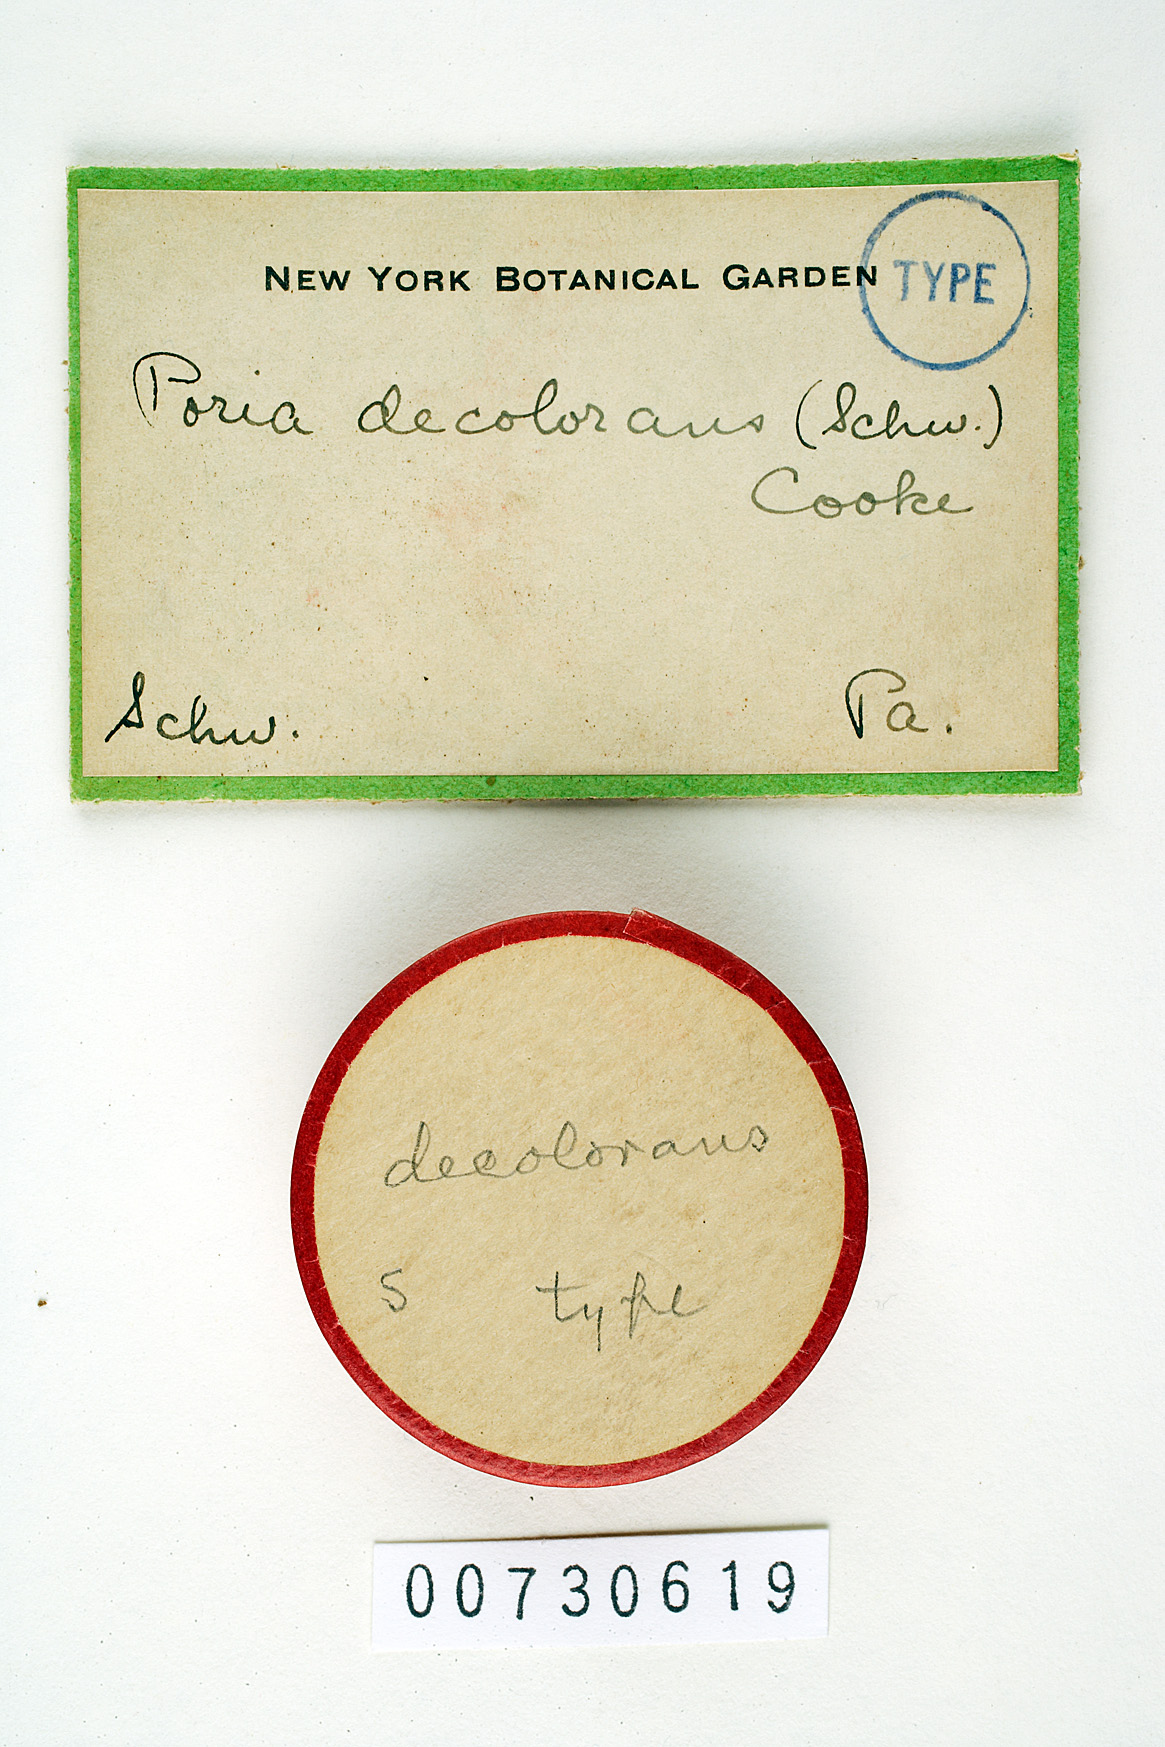 NEW YORK BOTANICAL GARDEN
TYPE
Poria decolorans (Schw.)
Cooke
Schw. Pa.
decolorans
S type
00730619